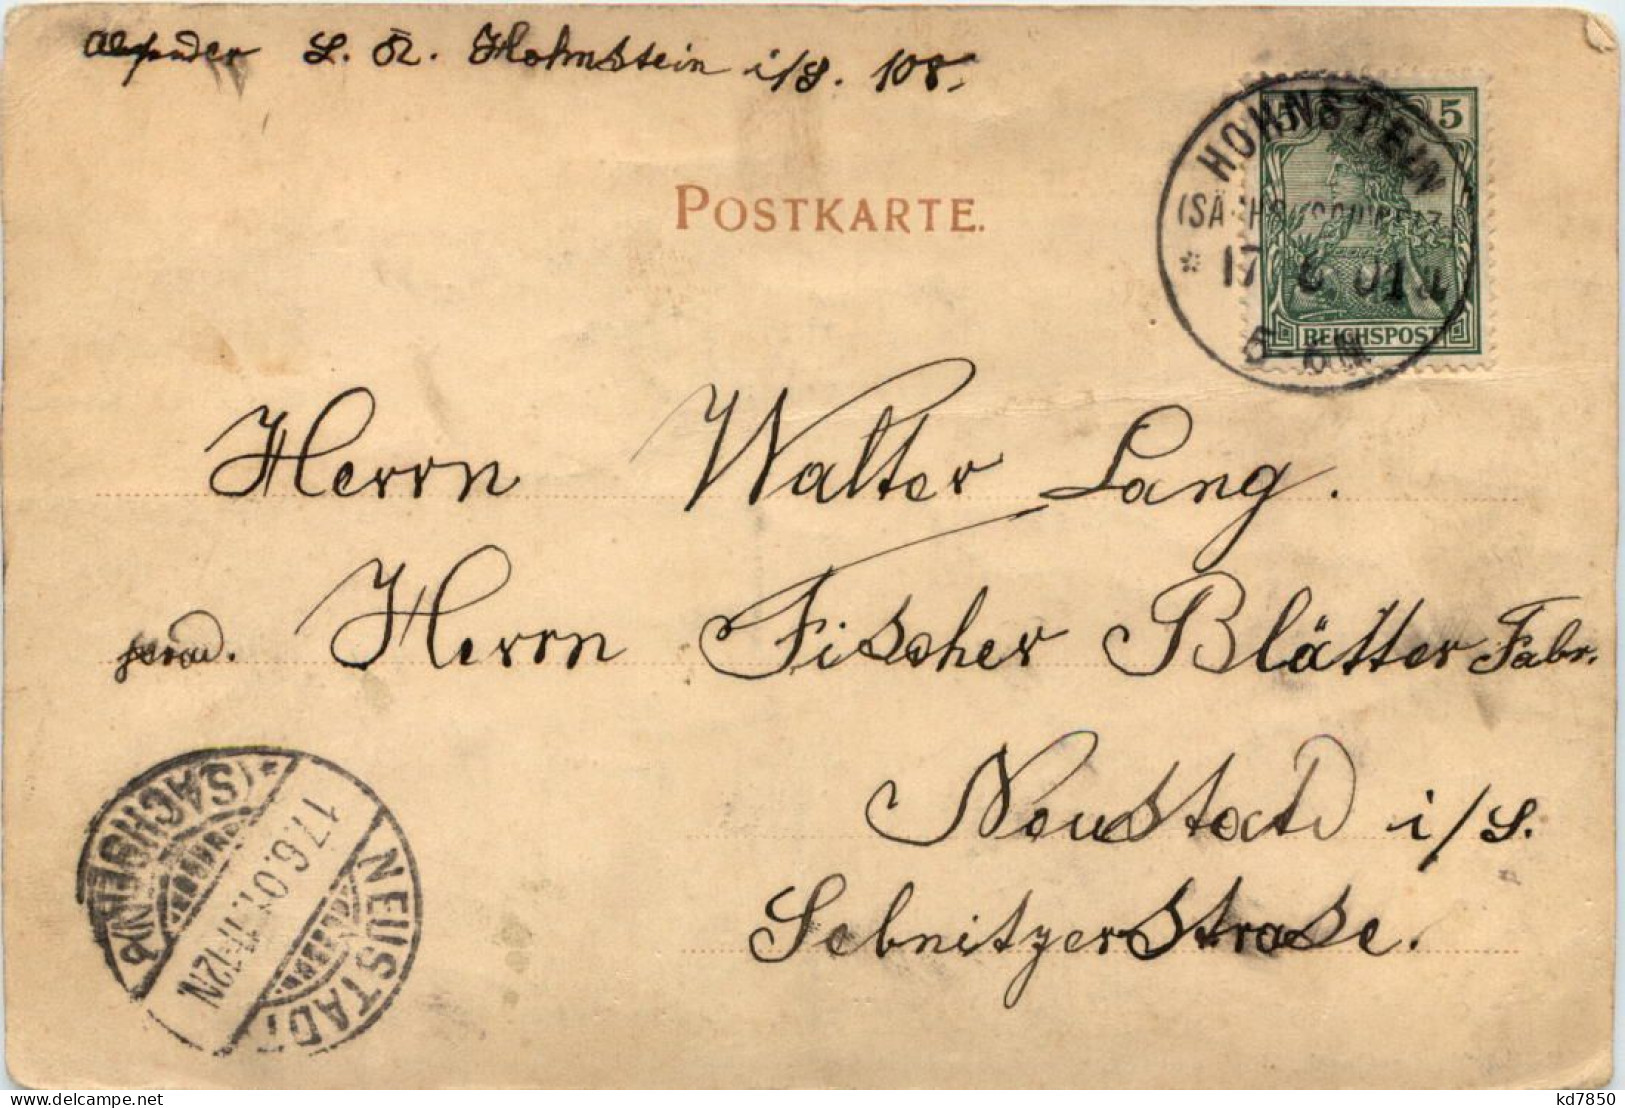 Absender L. R. Hohnstein i/S. 108.
POSTKARTE.
5 5
REICHSPOST
HOHNSTEIN
(SÄCHS. SCHWEIZ)
* 17 6. 01
5-6N
Herrn Walter Lang.
Herrn Fischer Blätter Fabr.
Neustadt i/S.
Sebnitzerstrase.
NEUSTADT
17.6.01. 11-12N.
*(SACHSEN)
kd7850